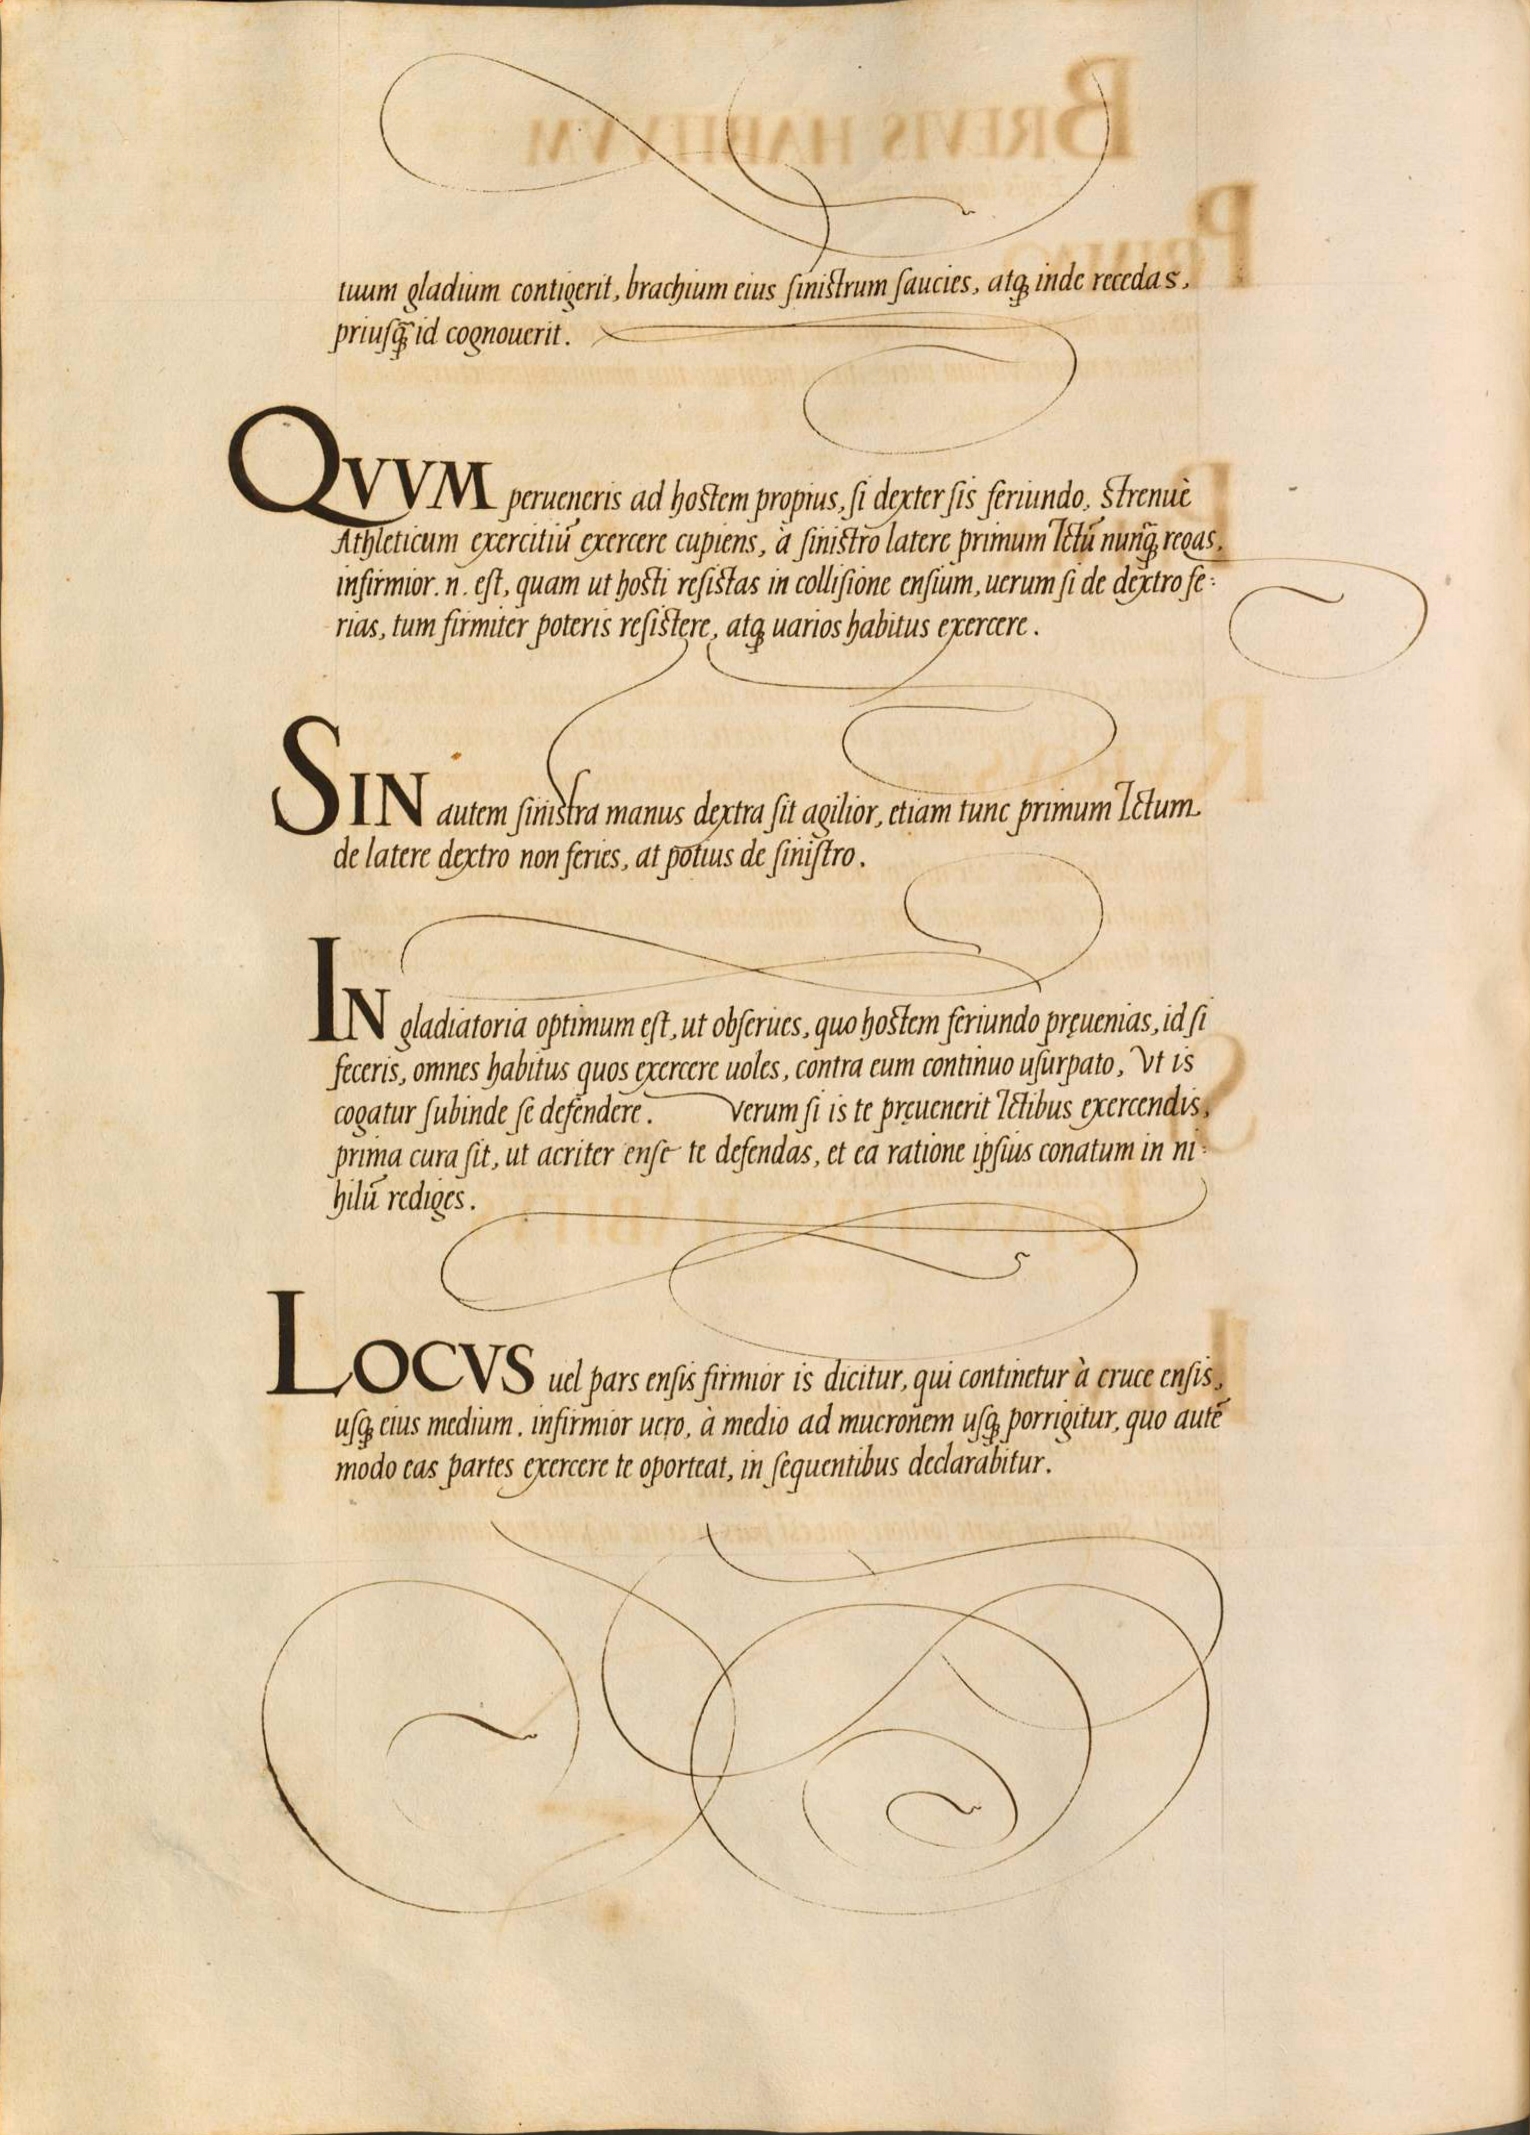 tuum gladium contigerit, brachium eius sinistrum saucies, atq; inde recedas,
priusq̃ id cognouerit.
QVVM perueneris ad hostem propius, si dexter sis feriundo, strenuè
Athleticum exercitiũ exercere cupiens, à sinistro latere primum Ictũ nunq̃ regas,
infirmior. n. est, quam ut hosti resistas in collisione ensium, uerum si de dextro fe:
rias, tum firmiter poteris resistere, atq; uarios habitus exercere.
SIN autem sinistra manus dextra sit agilior, etiam tunc primum Ictum
de latere dextro non feries, at potius de sinistro.
IN gladiatoria optimum est, ut obserues, quo hostem feriundo pręuenias, id si
feceris, omnes habitus quos exercere uoles, contra eum continuo usurpato, Vt is
cogatur subinde se defendere. Verum si is te pręuenerit Ictibus exercendis,
prima cura sit, ut acriter ense te defendas, et ea ratione ipsius conatum in ni:
hilũ rediges.
LOCVS uel pars ensis firmior is dicitur, qui continetur à cruce ensis,
usq; eius medium. infirmior uero, à medio ad mucronem usq; porrigitur, quo autẽ
modo eas partes exercere te oporteat, in sequentibus declarabitur.